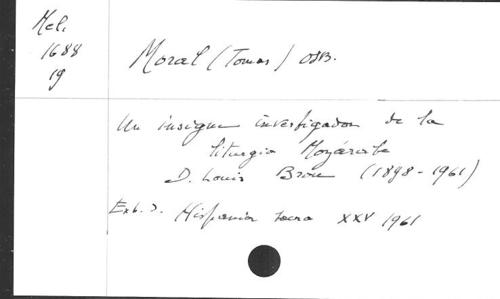 Mel.
1688
19
Moral (Tomas) OSB.
Un insigne investigador de la
liturgia Mozárabe
D. Louis Brou (1898-1961)
Ext. d. Hispania sacra XXV 1961